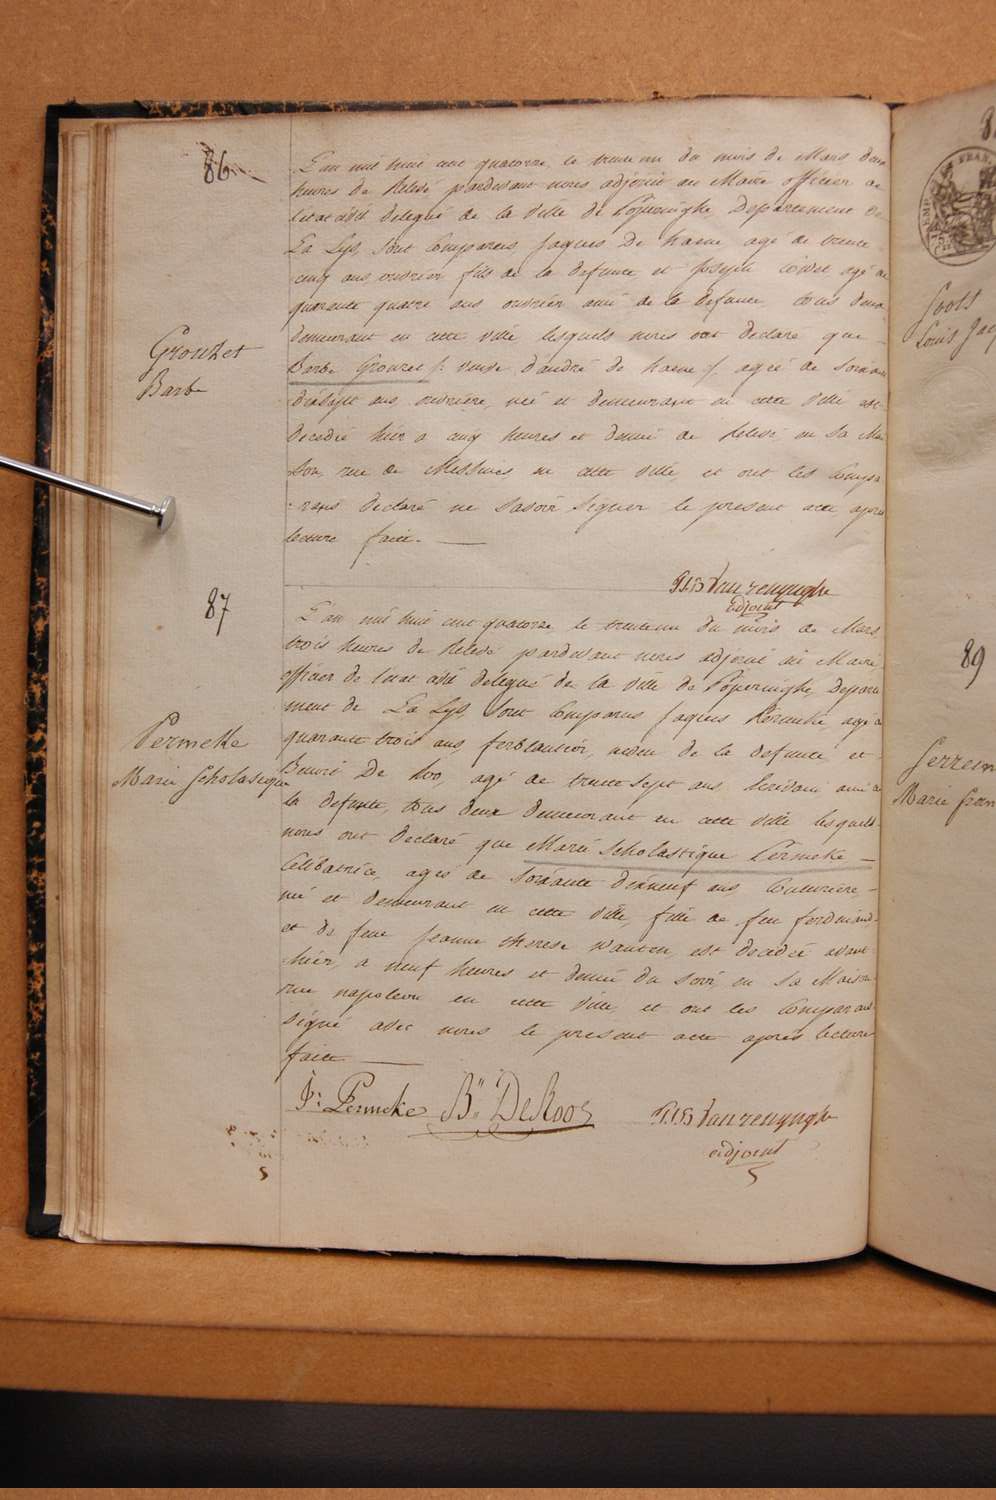 86
L'an mil huit cent quatorze, le trente un du mois de Mars deux
heures de Relevé pardevant nous adjoint au Maire officier de
l'etat civil delegué de la ville de Poperinghe, Departement de
La Lys, sont Comparus Jaques De haene agé de trente
cinq ans, ouvrier fils de la defunte, et Joseph agé de
quarante quatre ans ouvrier ami de la defunte, tous deux
demeurant en cette ville lesquels nous ont declaré que
Grouzet
Barbe
Barbe Grouzet /: veuve d'andré de haene :/ agée de soixante
dixsept ans, ouvrière, née et demeurant en cette ville est
Decedée hier a cinq heures et demie de Relevé en sa Mai
son, rue de Messines en cette ville, et ont les Compa
:rans declaré ne savoir signer le present acte, après
lecture faite.
P.J.B Vanrenynghe
adjoint
87
L'an mil huit cent quatorze, le trente un du mois de Mars
trois heures de Relevé pardevant nous adjoint au Maire
officier de l'etat civil delegué de la ville de Poperinghe, Departe
ment de La Lys, sont Comparus Jaques Permeke, agé de
quarante trois ans, ferblantier, neveu de la defunte et
Permeke
Marie Scholastique
Benoit De Roo, agé de trente sept ans, ami de
la defunte, tous deux demeurant en cette ville lesquels
nous ont declaré que Marie Scholastique Permeke
Celibatrice, agée de soixante dixneuf ans Couturière,
née et demeurant en cette ville, fille de feu ferdinand
et de feue Jeanne therese Wauten, est decedée avant
hier, a neuf heures et demie du soir, en sa Maison
rue napoleon en cette ville, et ont les Comparans
signé avec nous le present acte après lecture
faite
Js: Permeke Bn: DeRoo
P.J.B Vanrenynghe
adjoint
8
Louis Jaq
89
Marie fran